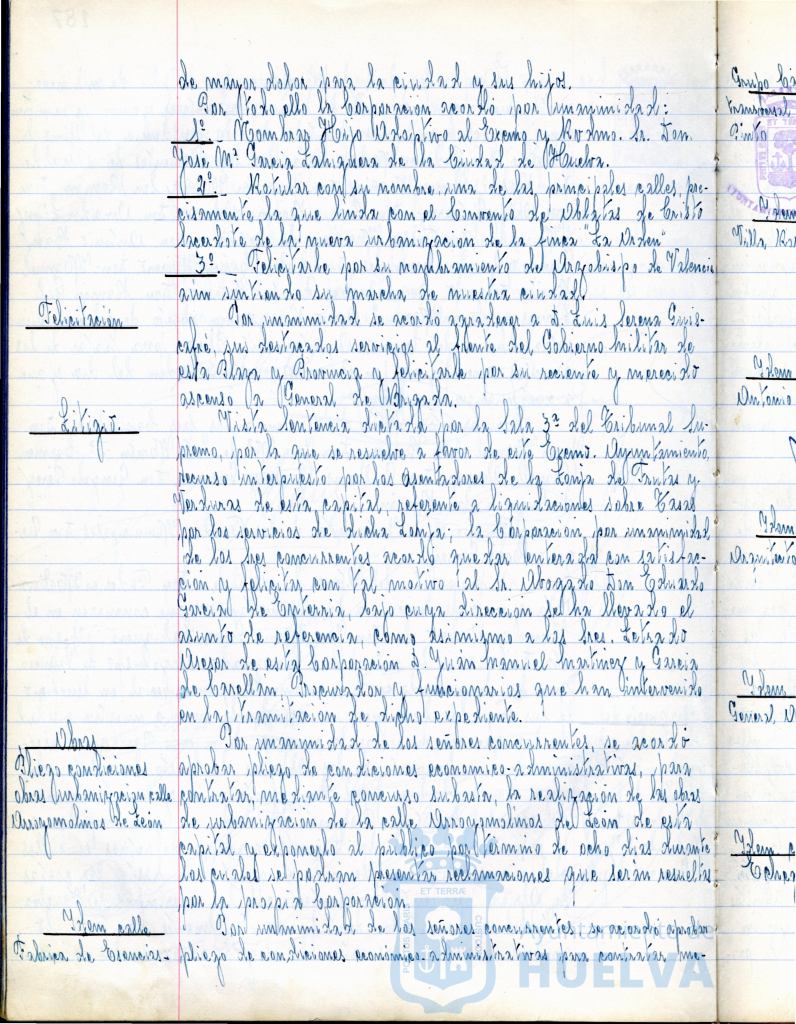 de mayor dolor para la ciudad y sus hijos.
Por todo ello la Corporación acordó por unanimidad:
1º.- Nombrar Hijo Adoptivo al Excmo y Rvdmo. Sr. Don
José Mª García Lahiguera de la Ciudad de Huelva.
2º.- Rotular con su nombre una de las principales calles, pre-
cisamente la que linda con el Convento de Oblatas de Cristo
Sacerdote de la nueva urbanización de la finca "La Orden"
3º.- Felicitarle por su nombramiento de Arzobispo de Valencia
aún sintiendo su marcha de nuestra ciudad.
Felicitación
Por unanimidad se acordó agradecer a D. Luis Serena Guis-
cafré, sus destacados servicios al frente del Gobierno militar de
esta Plaza y Provincia y felicitarle por su reciente y merecido
ascenso a General de Brigada.
Litigio.
Vista Sentencia dictada por la Sala 3ª del Tribunal Su-
premo, por la que se resuelve a favor de este Excmo. Ayuntamiento,
recurso interpuesto por los Asentadores de la Lonja de Frutas y
Verduras de esta capital, referente a liquidaciones sobre Tasas
por los servicios de dicha Lonja; la Corporación por unanimidad
de los Sres concurrentes acordó quedar enterada con satisfac-
ción y felicitar con tal motivo al Sr. Abogado Don Eduardo
García de Enterria, bajo cuya dirección se ha llevado el
asunto de referencia, como asimismo a los Sres. Letrado
Asesor de esta Corporación D. Juan Manuel Martínez y García
de Carellan, Procurador y funcionarios que han intervenido
en la tramitación de dicho expediente.
Obras
Pliego condiciones
obras urbanización calle
Arroyomolinos de León
Por unanimidad de los señores concurrentes, se acordó
aprobar pliego de condiciones economico-administrativas, para
contratar, mediante concurso subasta, la realización de las obras
de urbanización de la calle Arroyomolinos del León de esta
capital y exponerlo al público por término de ocho días durante
los cuales se podrán presentar reclamaciones que serán resueltas
por la propia Corporación.
Idem calle
Fabrica de Esencias.-
Por unanimidad de los señores concurrentes, se acordó aprobar
pliego de condiciones economico-administrativas para contratar, me-
Grupo
transversal
Pinto
Idem
Villa
Idem
Antonio
Idem
Arquitecto
Idem
General
Idem
Ayuntamiento de
HUELVA
ET TERRÆ
187